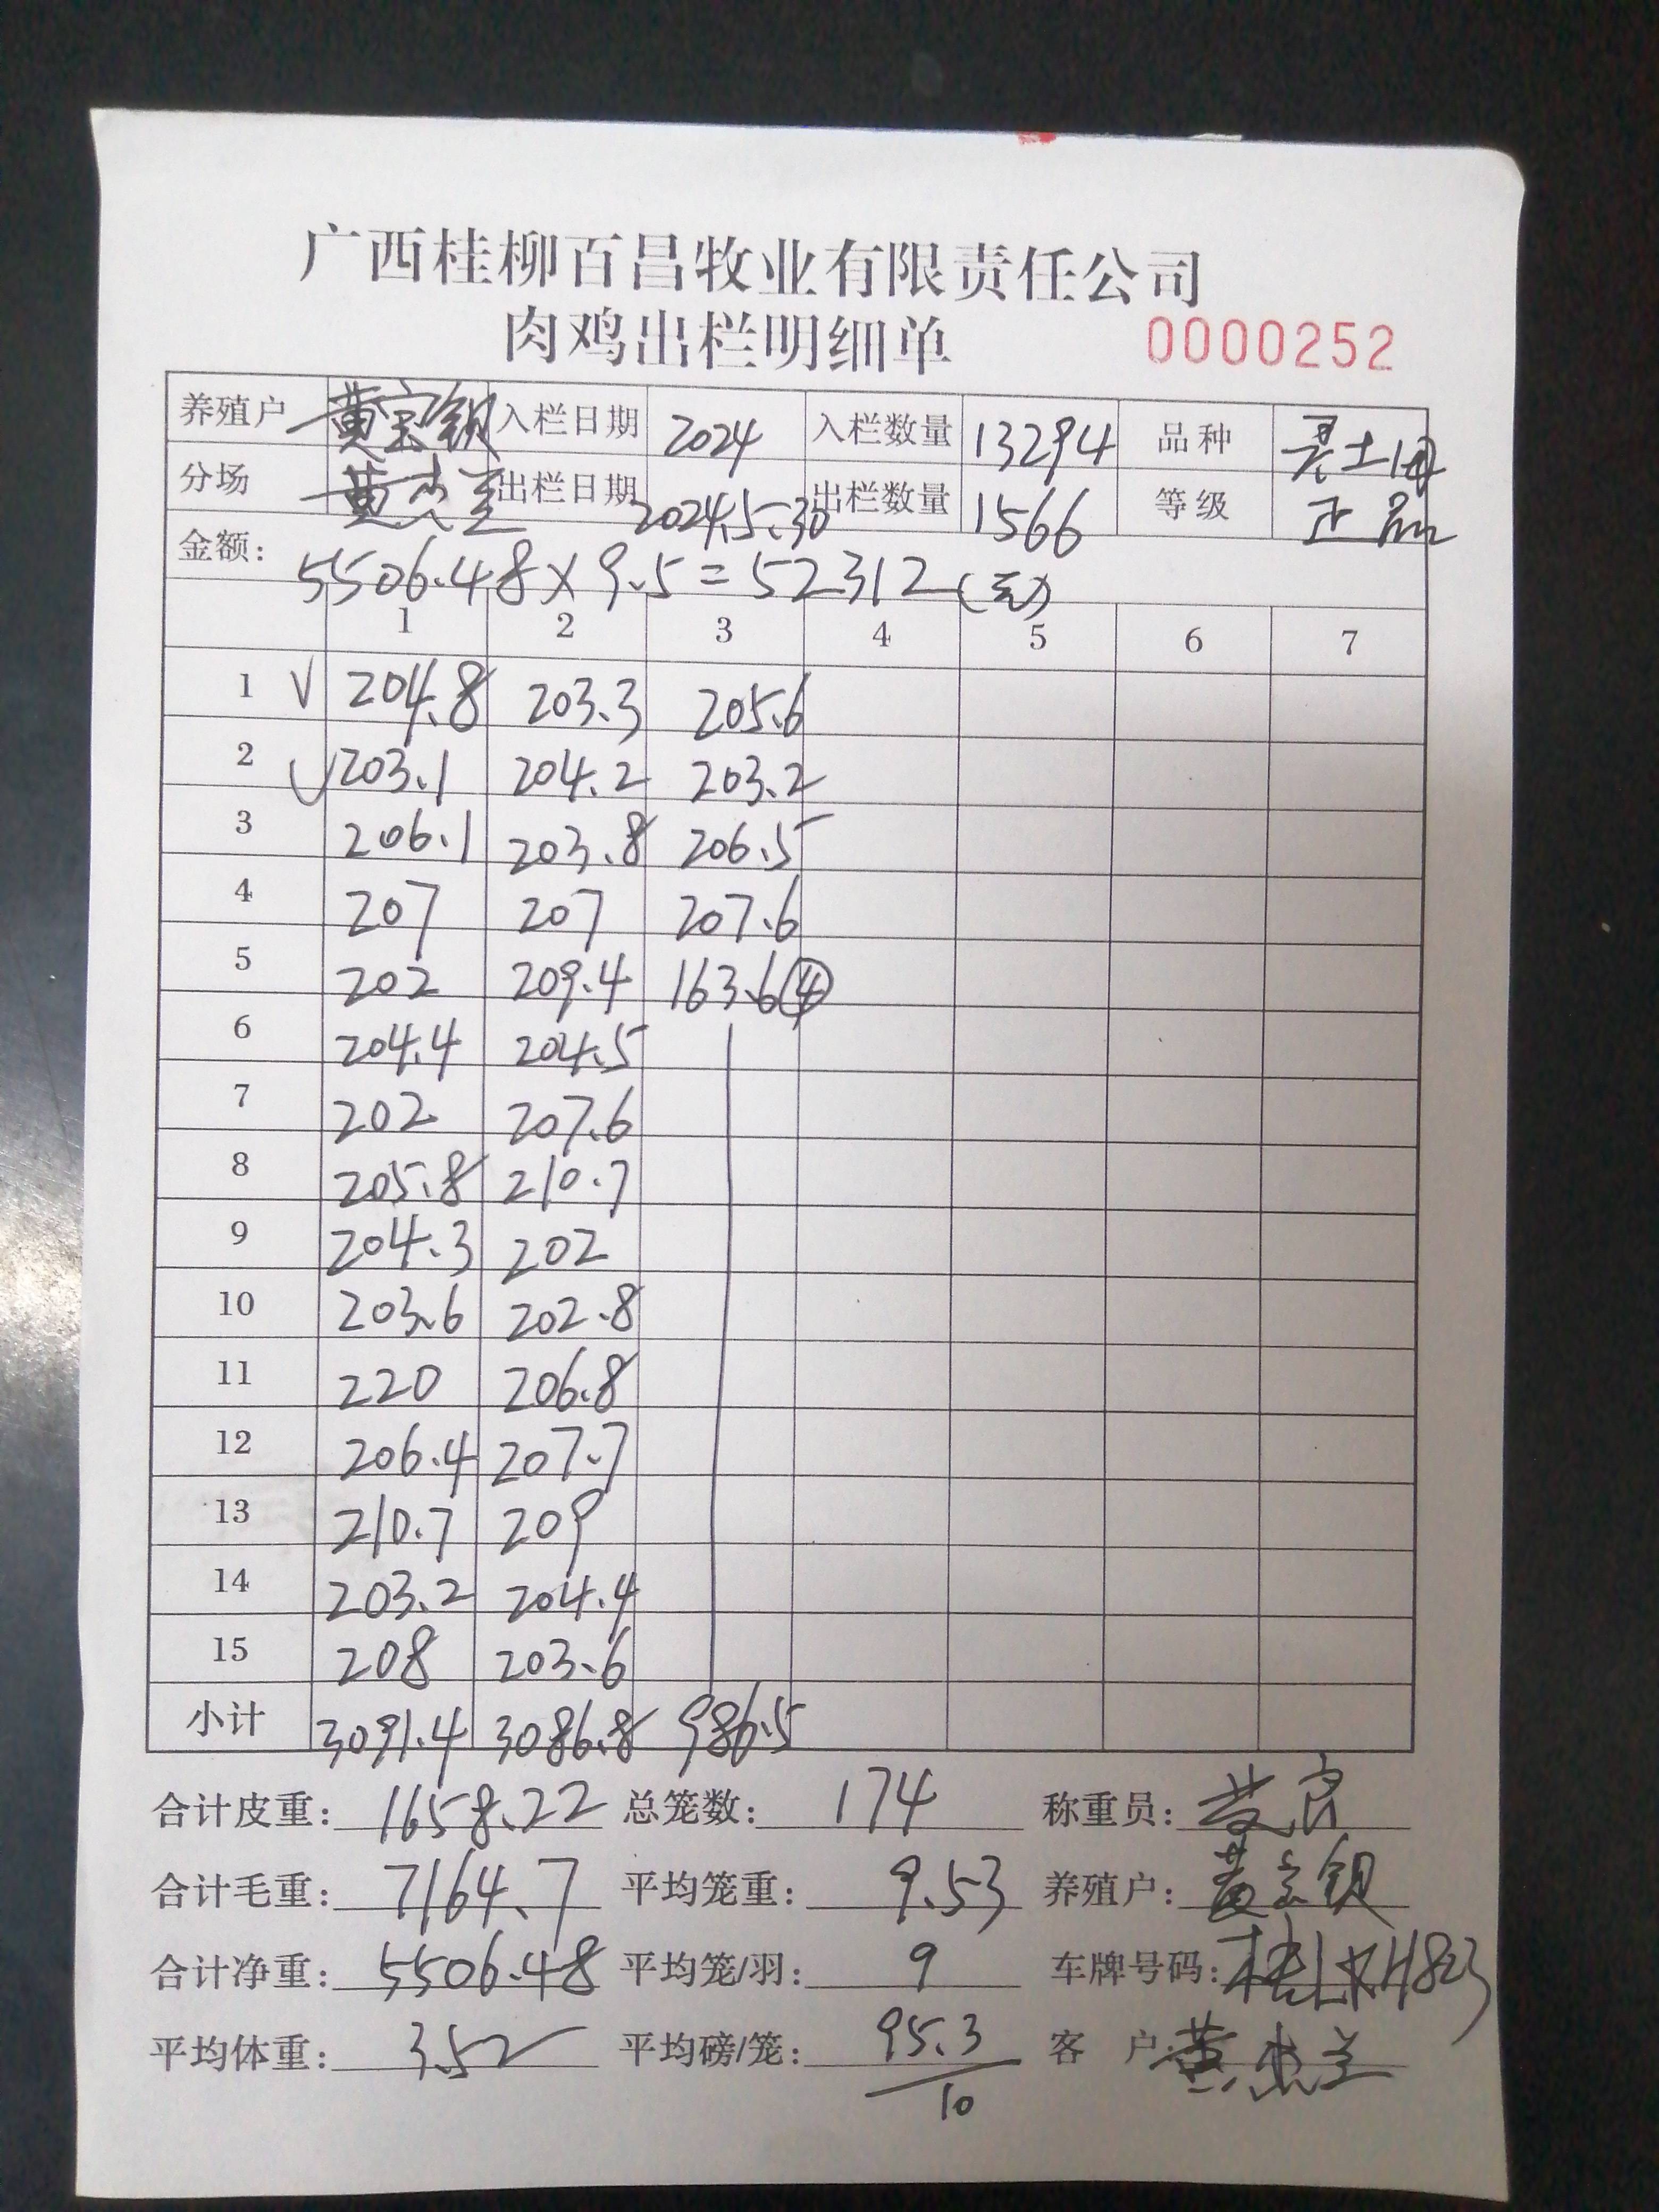 广西桂柳百昌牧业有限责任公司
肉鸡出栏明细单 0000252
养殖户 黄宝钡 入栏日期 2024 入栏数量 13294 品种 土
分场 黄 出栏日期 2024.5.30 出栏数量 1566 等级 正品
金额: 5506.48×9.5=52312(元)
1 2 3 4 5 6 7
1 √ 204.8 203.3 205.6
2 √ 203.1 204.2 203.2
3 206.1 203.8 206.5
4 207 207 207.6
5 202 209.4 163.6 ④
6 204.4 204.5
7 202 207.6
8 205.8 210.7
9 204.3 202
10 203.6 202.8
11 220 206.8
12 206.4 207.7
13 210.7 209
14 203.2 204.4
15 208 203.6
小计 3091.4 3086.8 986.5
合计皮重: 1658.22 总笼数: 174 称重员:
合计毛重: 7164.7 平均笼重: 9.53 养殖户: 黄宝钡
合计净重: 5506.48 平均笼/羽: 9 车牌号码:
平均体重: 3.52 平均磅/笼: 95.3 客户: 黄
10